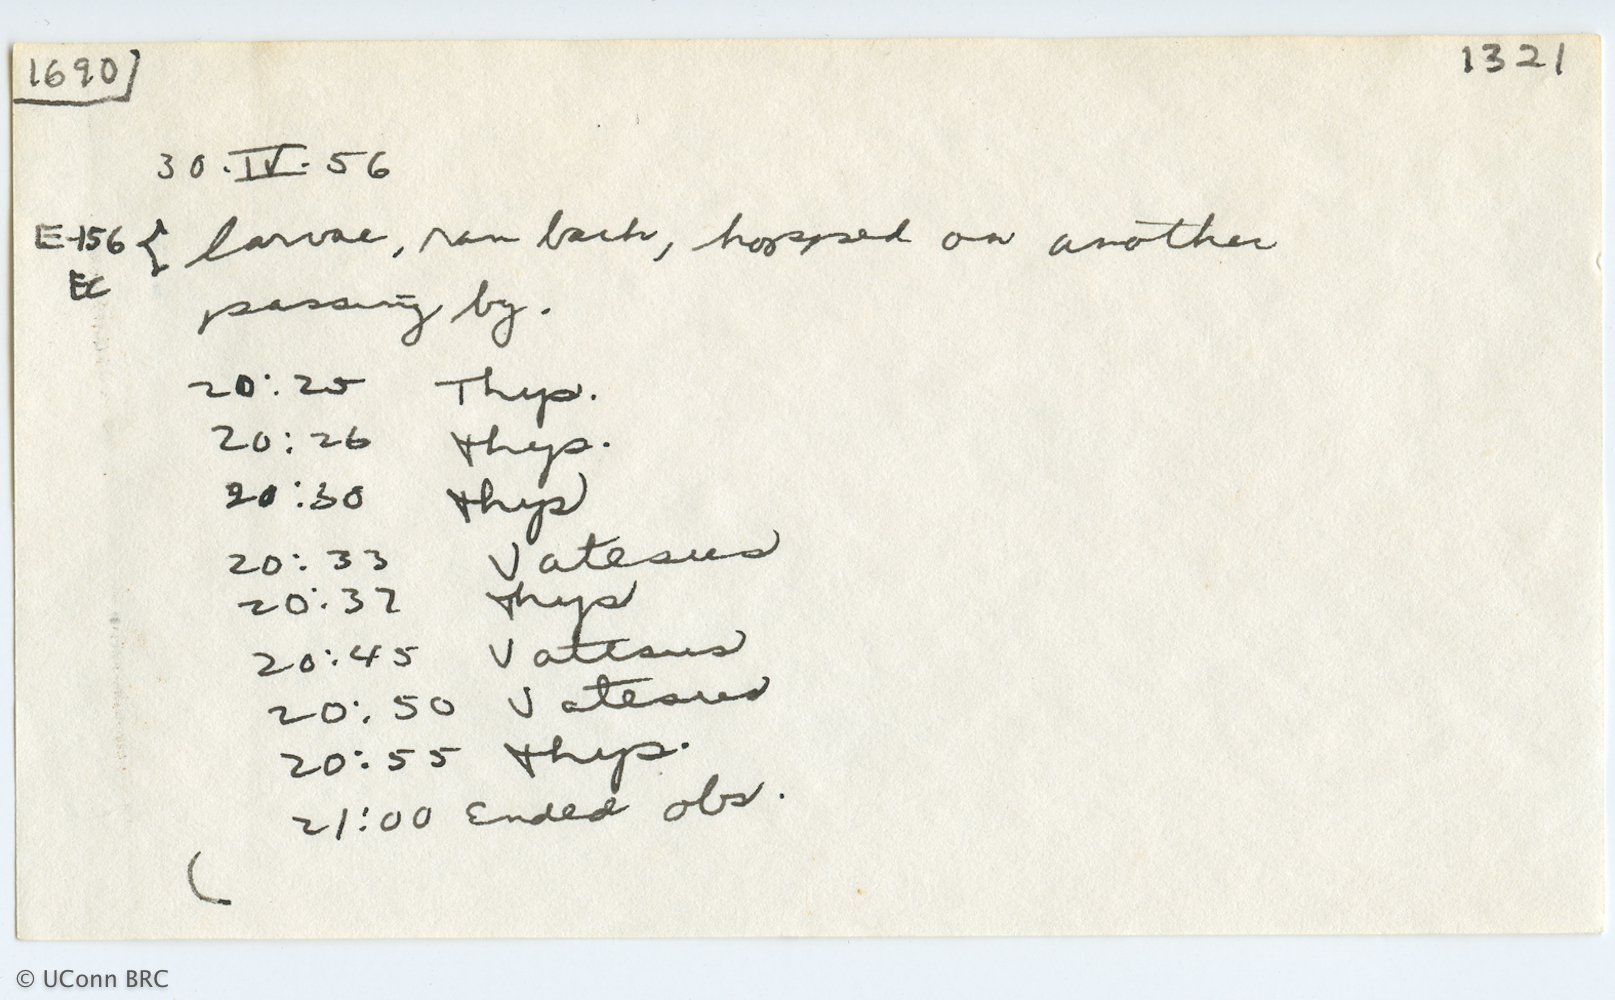 1690] 1321
30.IV.56
E-156 { larvae, ran back, hopped on another
EC
passing by.
20:25 Thys.
20:26 thys.
20:30 thys
20:33 Vatesus
20:37 thys
20:45 Vatesus
20:50 Vatesus
20:55 thys.
21:00 Ended obs.
(
© UConn BRC